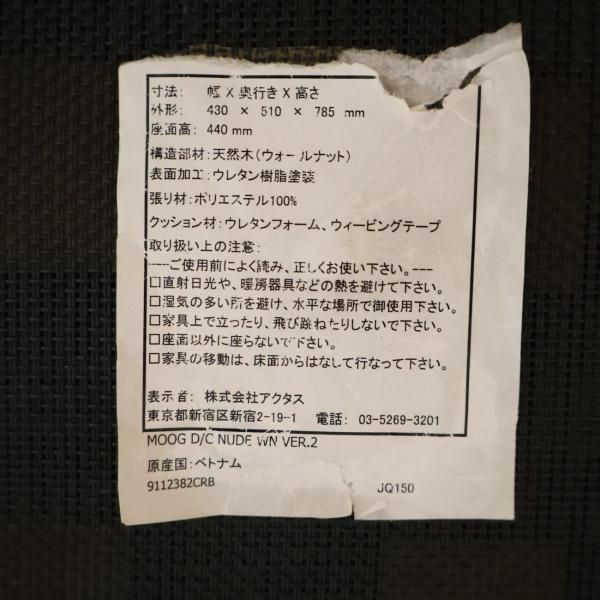 寸法: 幅 X 奥行き X 高さ
外形: 430 × 510 × 785 mm
座面高: 440 mm
構造部材:天然木(ウォールナット)
表面加工:ウレタン樹脂塗装
張り材:ポリエステル100%
クッション材:ウレタンフォーム、ウィービングテープ
取り扱い上の注意:
----ご使用前によく読み、正しくお使い下さい。---
□直射日光や、暖房器具などの熱を避けて下さい。
□湿気の多い所を避け、水平な場所で御使用下さい。
□家具上で立ったり、飛び跳ねたりしないで下さい。
□座面以外に座らないで下さい。
□家具の移動は、床面からはなして行なって下さい。
表示者: 株式会社アクタス
東京都新宿区新宿2-19-1 電話: 03-5269-3201
MOOG D/C NUDE WN VER.2
原産国:ベトナム
9112382CRB JQ150